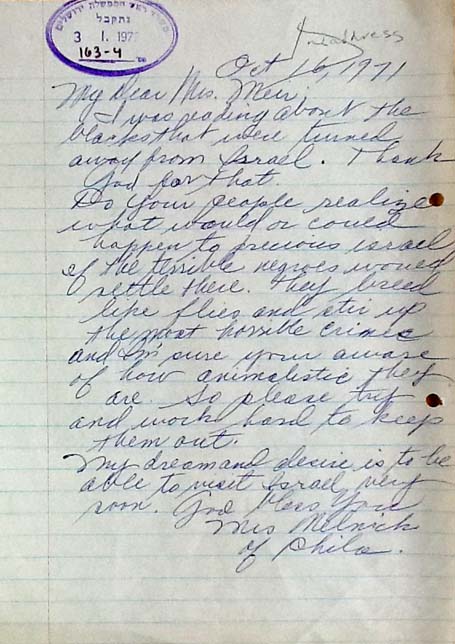 משרד ראש הממשלה ירושלים
נתקבל
3 1 -10- 1971
163-4
no address
Oct 16, 1971
My Dear Mrs. Meir;
I was reading about the
blacks that were turned
away from Israel. Thank
God for that.
Do your people realize
what would or could
happen to precious israel
if the terrible negroes would
settle there. They breed
like flies and stir up
the most horrible crimes
and I'm sure your aware
of how animalistic they
are. So please try
and work hard to keep
them out.
My dream and desire is to be
able to visit Israel very
soon. God bless You
Mrs Melnick
of Phila.